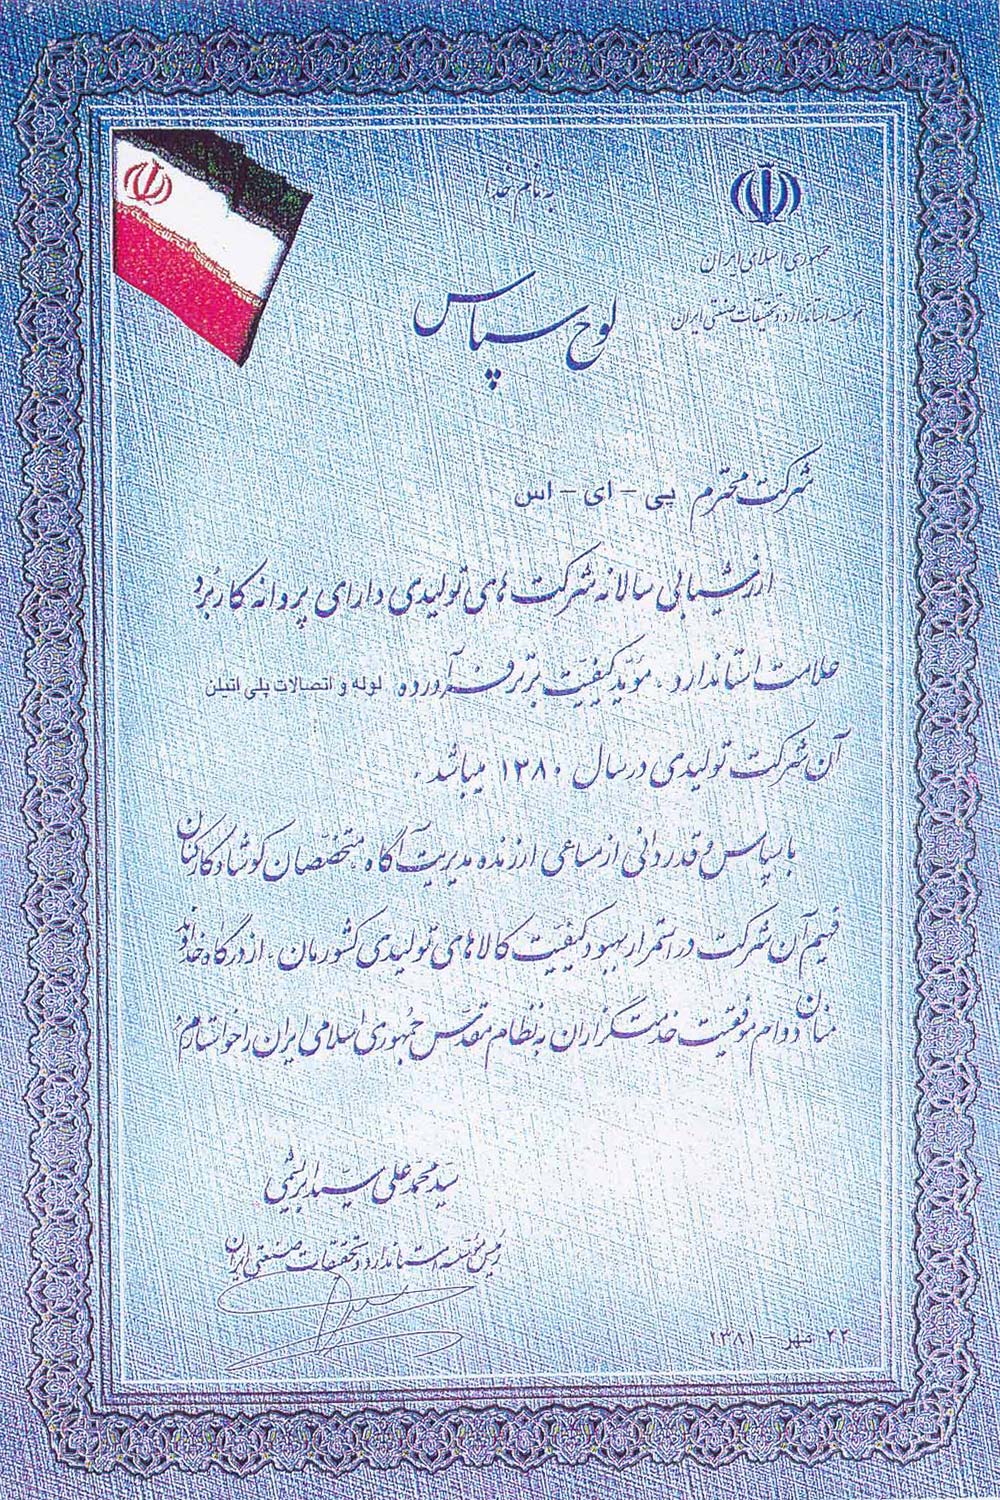 به نام خدا
جمهوری اسلامی ایران
موسسه استاندارد و تحقیقات صنعتی ایران
لوح سپاس
شرکت محترم پی - ای - اس
ارزشیابی سالانه شرکت های تولیدی دارای پروانه کاربرد
علامت استاندارد ، مؤید کیفیت برتر فرآورده لوله و اتصالات پلی اتیلن
آن شرکت تولیدی در سال ۱۳۸۰ میباشد .
با سپاس و قدردانی از مساعی ارزنده مدیریت آگاه ، متخصصان کوشا و کارکنان
فهیم آن شرکت در استمرار بهبود کیفیت کالاهای تولیدی کشورمان ، از درگاه خداوند
منان دوام موفقیت خدمتگزاران به نظام مقدس جمهوری اسلامی ایران را خواستارم
سید محمد علی سید ابریشمی
رئیس مؤسسه استاندارد و تحقیقات صنعتی ایران
۲۲ مهر - ۱۳۸۱